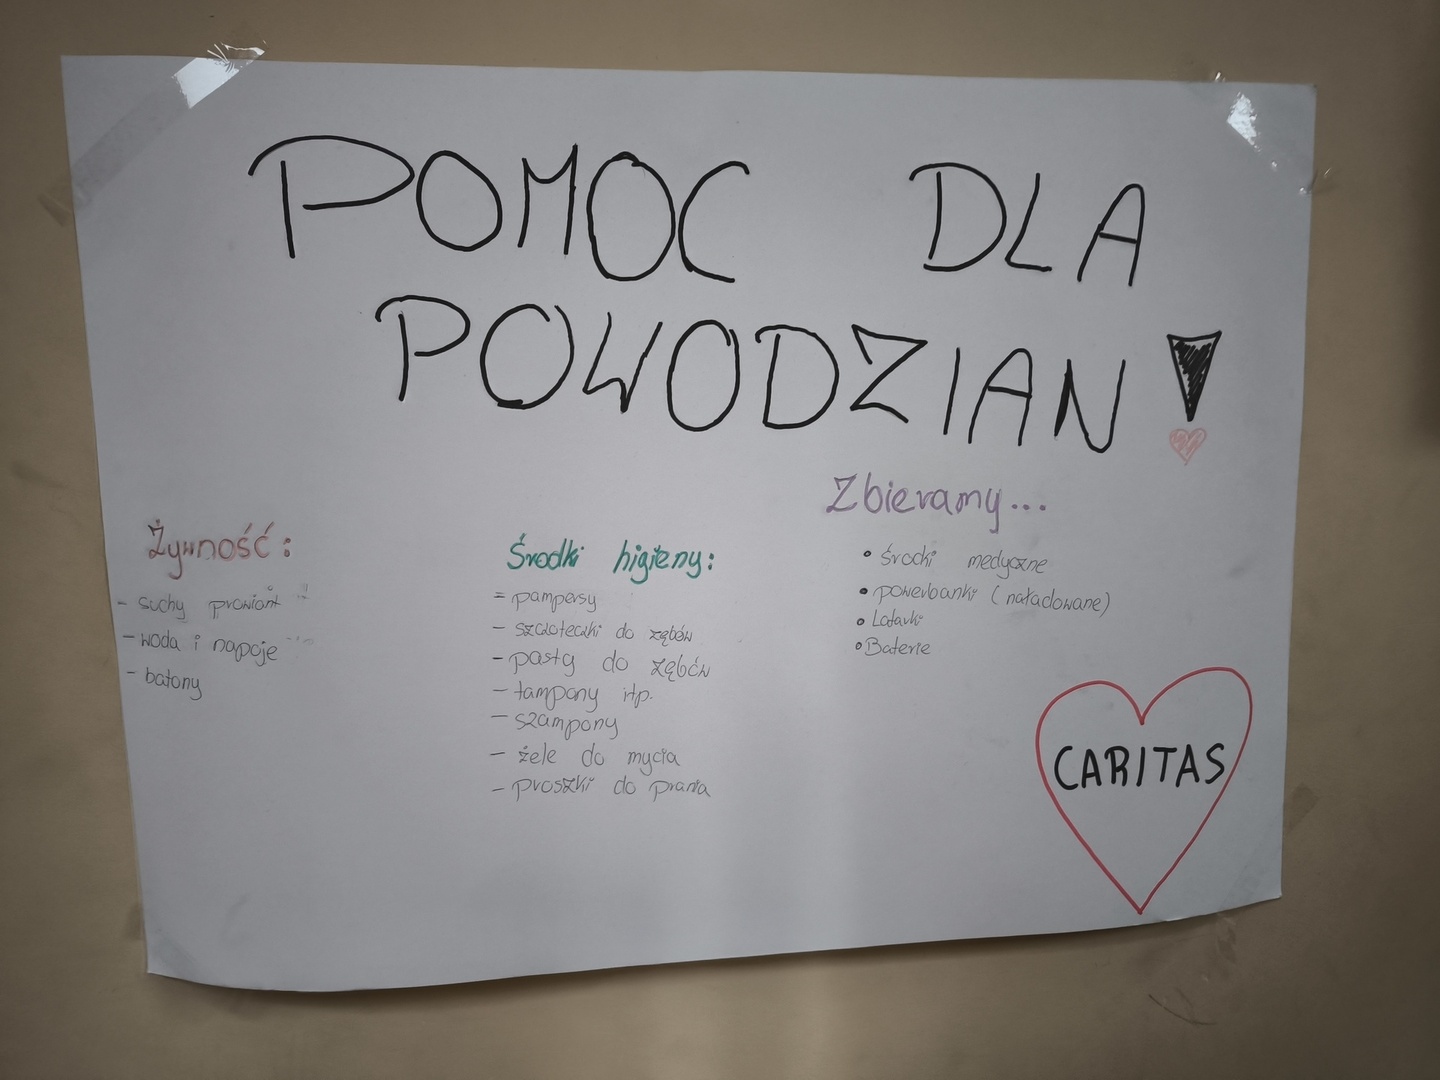 POMOC DLA
POWODZIAN!
Żywność:
- suchy prowiant
- woda i napoje
- batony
Środki higieny:
= pampersy
- szczoteczki do zębów
- pasty do zębów
- tampony itp.
- szampony
- żele do mycia
- proszki do prania
Zbieramy...
• środki medyczne
• powerbanki (naładowane)
• Latarki
• Baterie
CARITAS